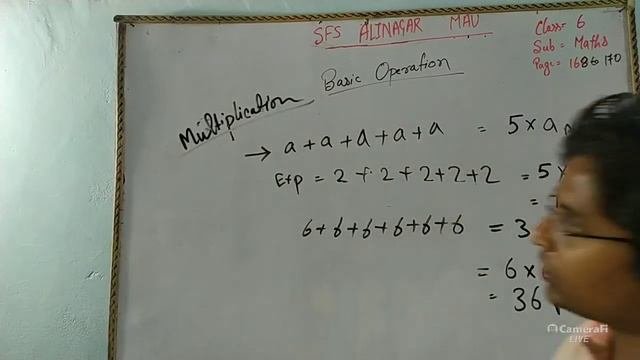 SFS ALINAGAR MAU
Class= 6
Sub = Maths
Page = 168 to 170
Basic Operation
Multiplication
→ a + a + a + a + a = 5 x a
Exp = 2 + 2 + 2 + 2 + 2 = 5 x
=
6 + 6 + 6 + 6 + 6 + 6 = 3
= 6 x
= 36
CameraFi
LIVE